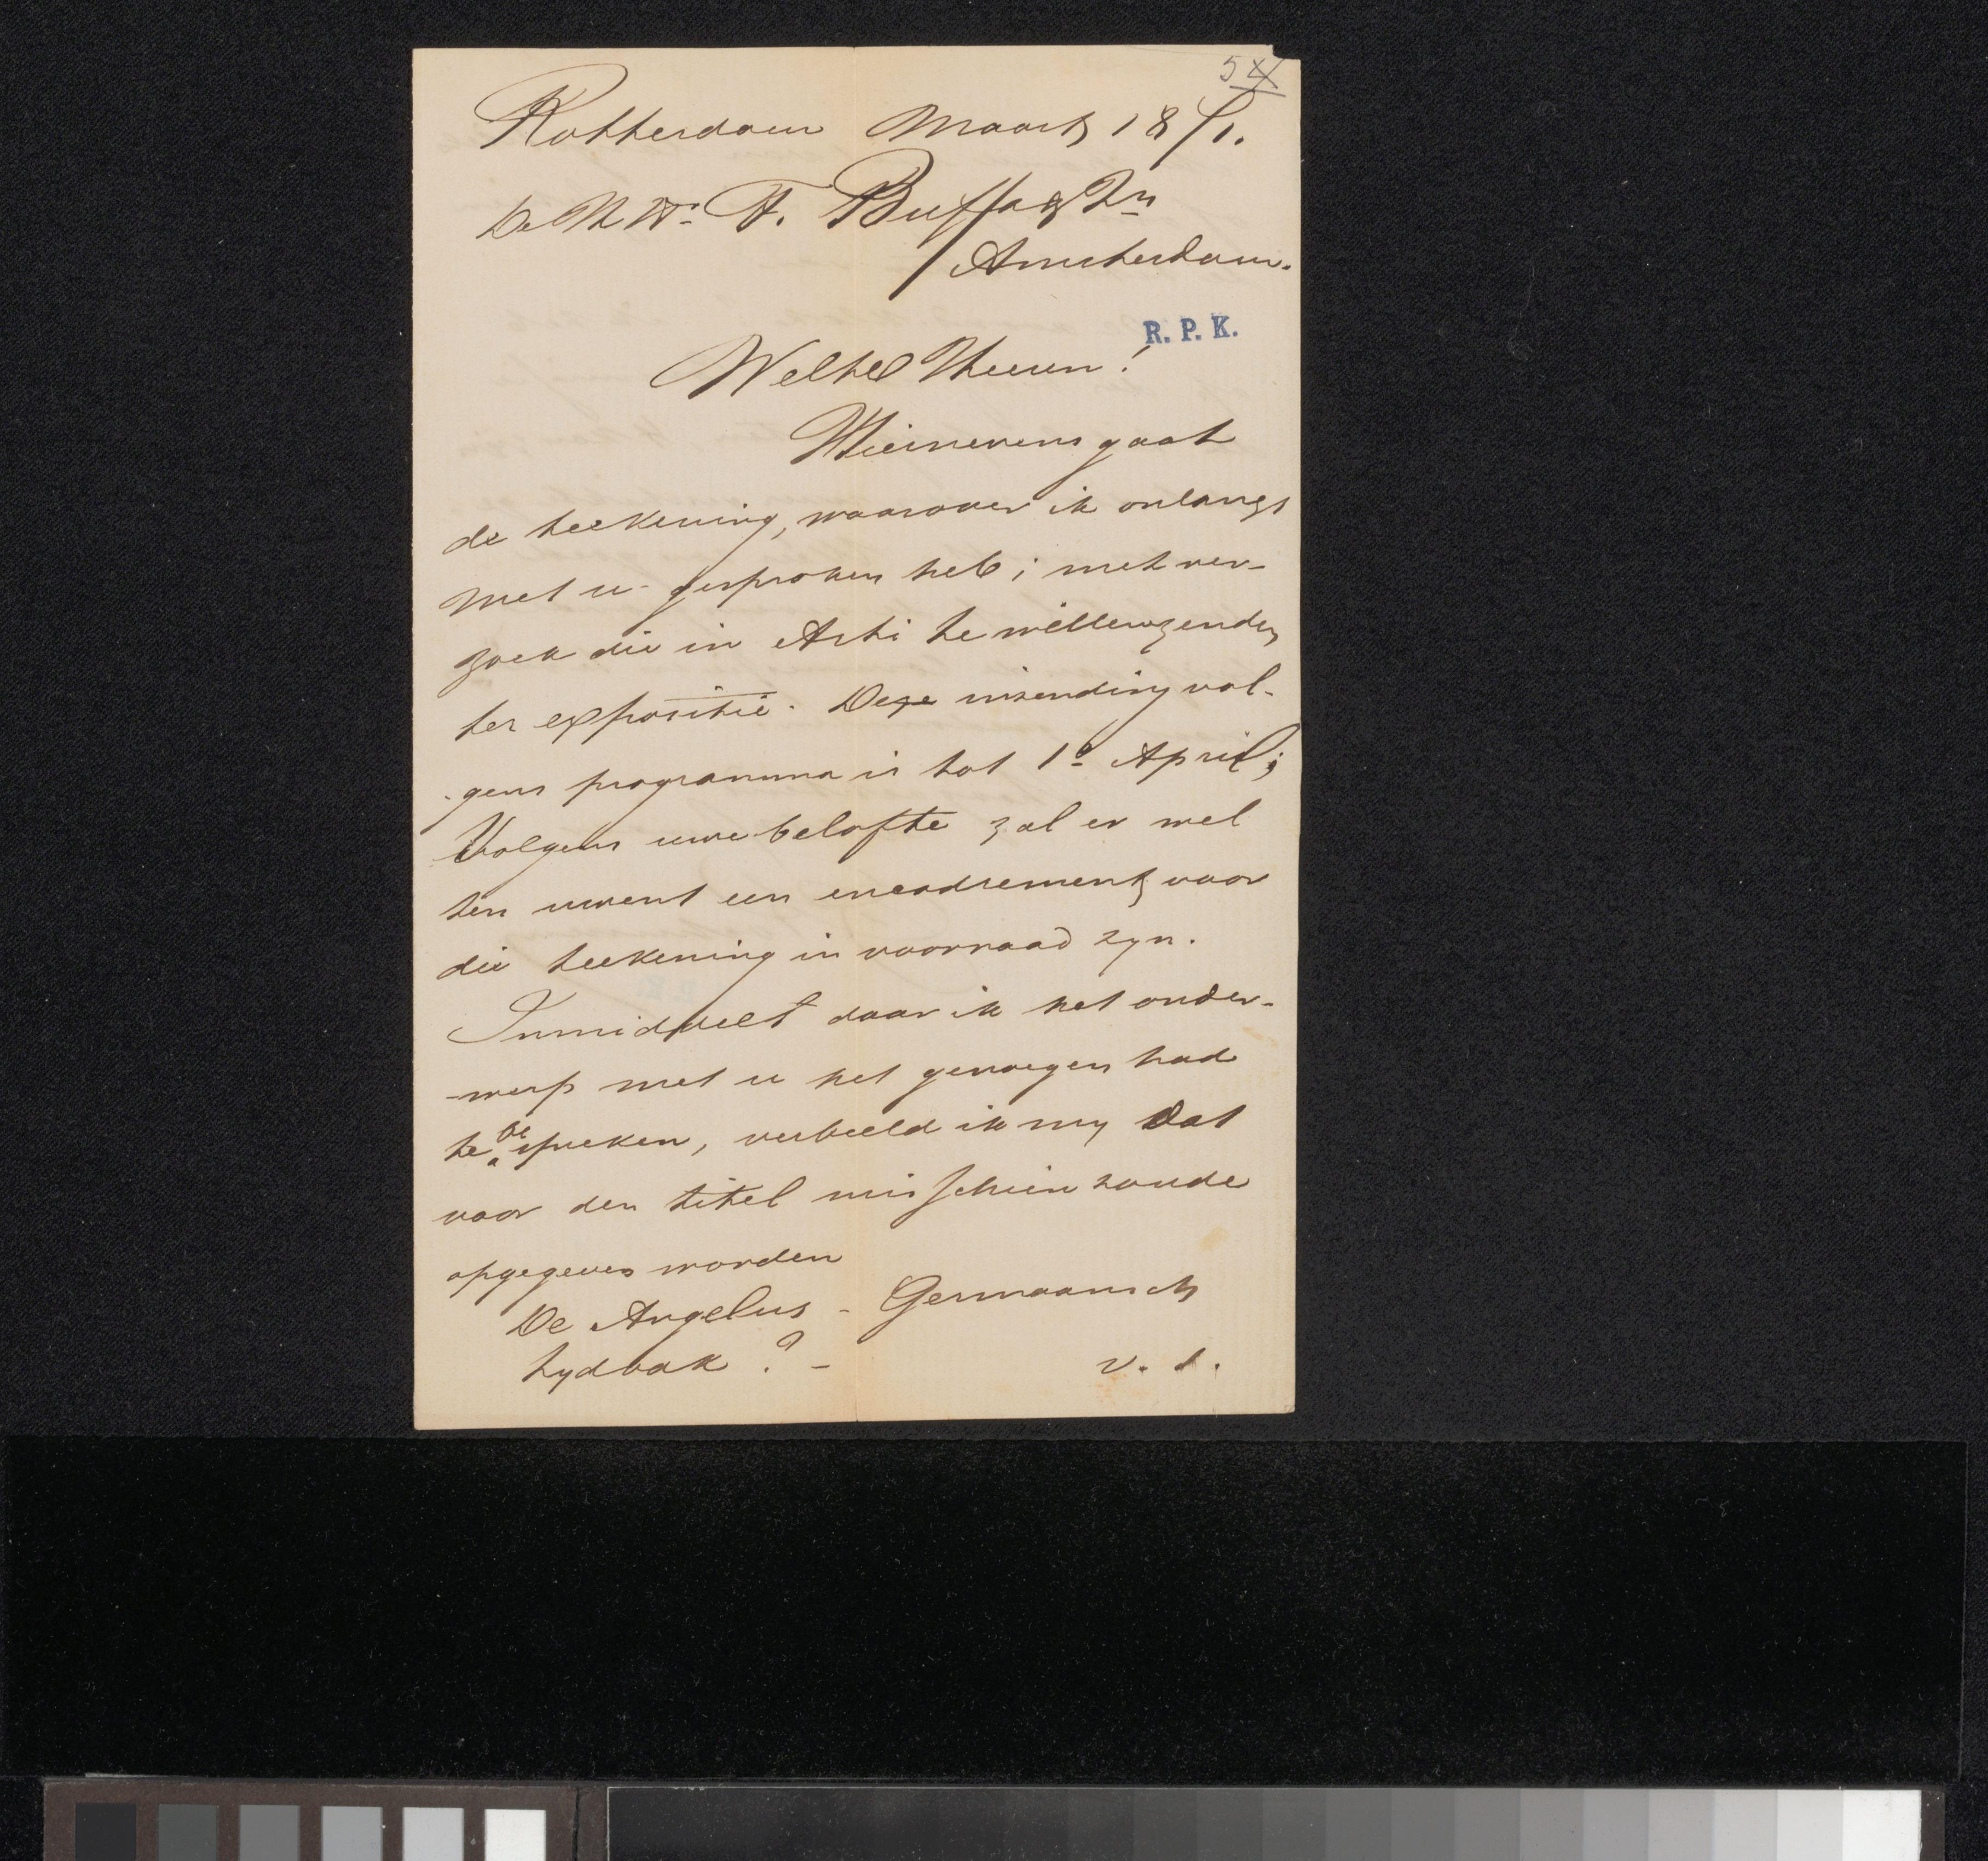 54
Rotterdam Maart 18/71.
De HH F. Buffa & Zn
Amsterdam.
R. P. K.
WelEd Heeren!
Hiernevens gaat
de teekening, waarover ik onlangs
met u gesproken heb; met ver-
zoek die in Arti te willen zenden
ter expositie. Deze inzending vol-
gens programma is tot 1o April;
Volgens uwe belofte zal er wel
ten uwent een encadrement voor
die teekening in voorraad zyn.
Inmiddels daar ik het onder-
-werp met u het genoegen had
te bespreken, verbeeld ik my dat
voor den titel misschien zoude
opgegeven worden
De Angelus - Germaansch
tydvak? -
v. s.